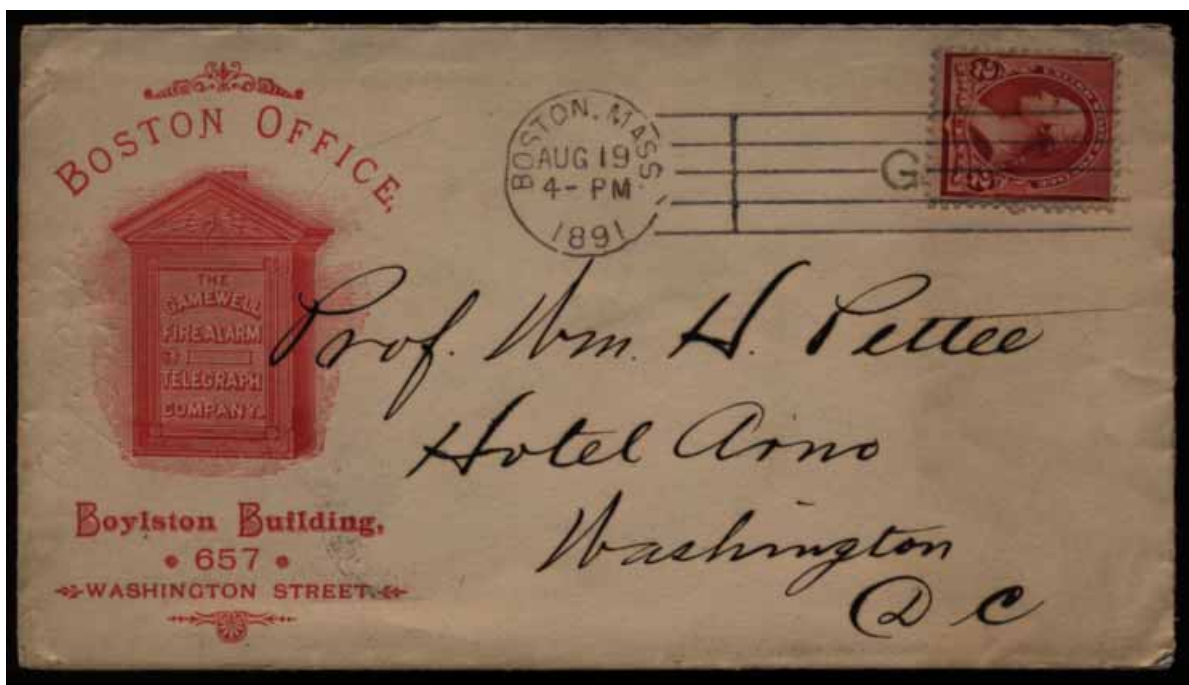 BOSTON OFFICE,
THE
GAMEWELL
FIRE ALARM
TELEGRAPH
COMPANY.
Boylston Building,
657
WASHINGTON STREET.
BOSTON, MASS.
AUG 19
4- PM
1891
G
2 2
Prof. Wm. H. Pettee
Hotel Arno
Washington
D C